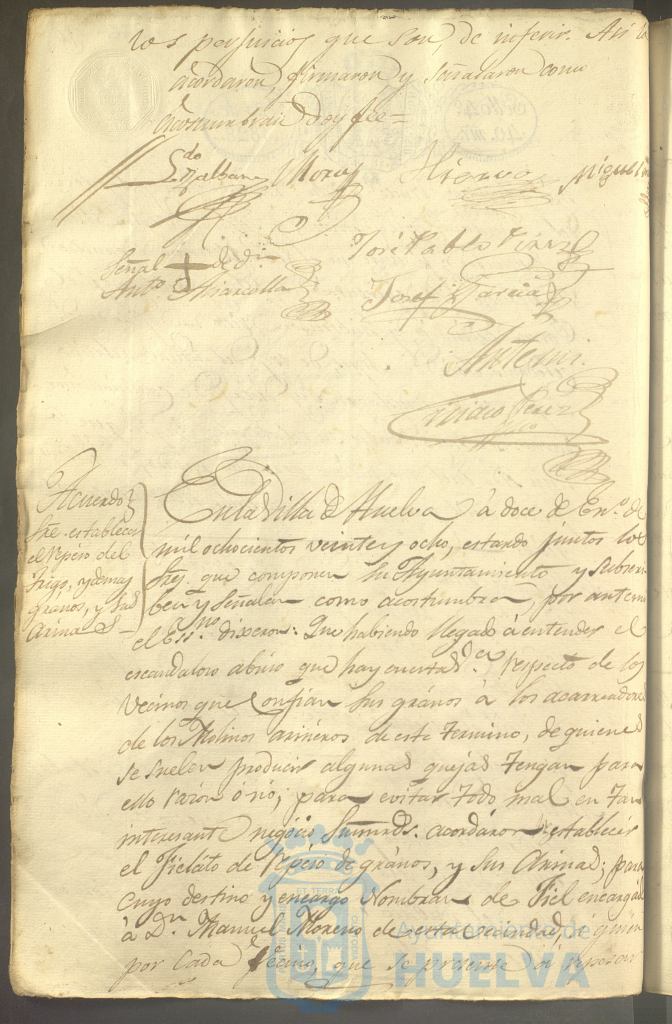 los perjuicios que son de inferir. Asi lo
acordaron, firmaron y señalaron como
acostumbran doy fee=
Ldo
Balbuena Mora Hierro Miguel
José Pablo Perez
Señal + de Dn
Anto
Josef Garcia
Ante mi.
Ciriaco Perez
Acuerdo
Sre. establecer
el repeso del
trigo, y demas
granos, y sus
arinas
En la Villa de Huelva à doce de En.o de
mil ochocientos veinte y ocho, estando juntos los
Sres. que componen su Ayuntamiento y subscri-
ben y señalan como acostumbran, por antemi
el Esno. dixeron: Que habiendo llegado à entender el
escandaloso abuso que hay en esta Va. respecto de los
Vecinos que confian sus granos à los acarreadores
de los Molinos arineros de este termino, de quienes
se suelen producir algunas quejas tengan para
ello razon ò nò; para evitar todo mal en tan
interesante negocio Sus mrds. acordaron establecer
el Fielato de repeso de granos, y sus arinas; para
cuyo destino y encargo nombran de Fiel encargado
à Dn. Manuel Moreno de esta vecindad, à quien
por cada vecino, que se presente à repesar
ET TERRAE
Ayuntamiento de
HUELVA